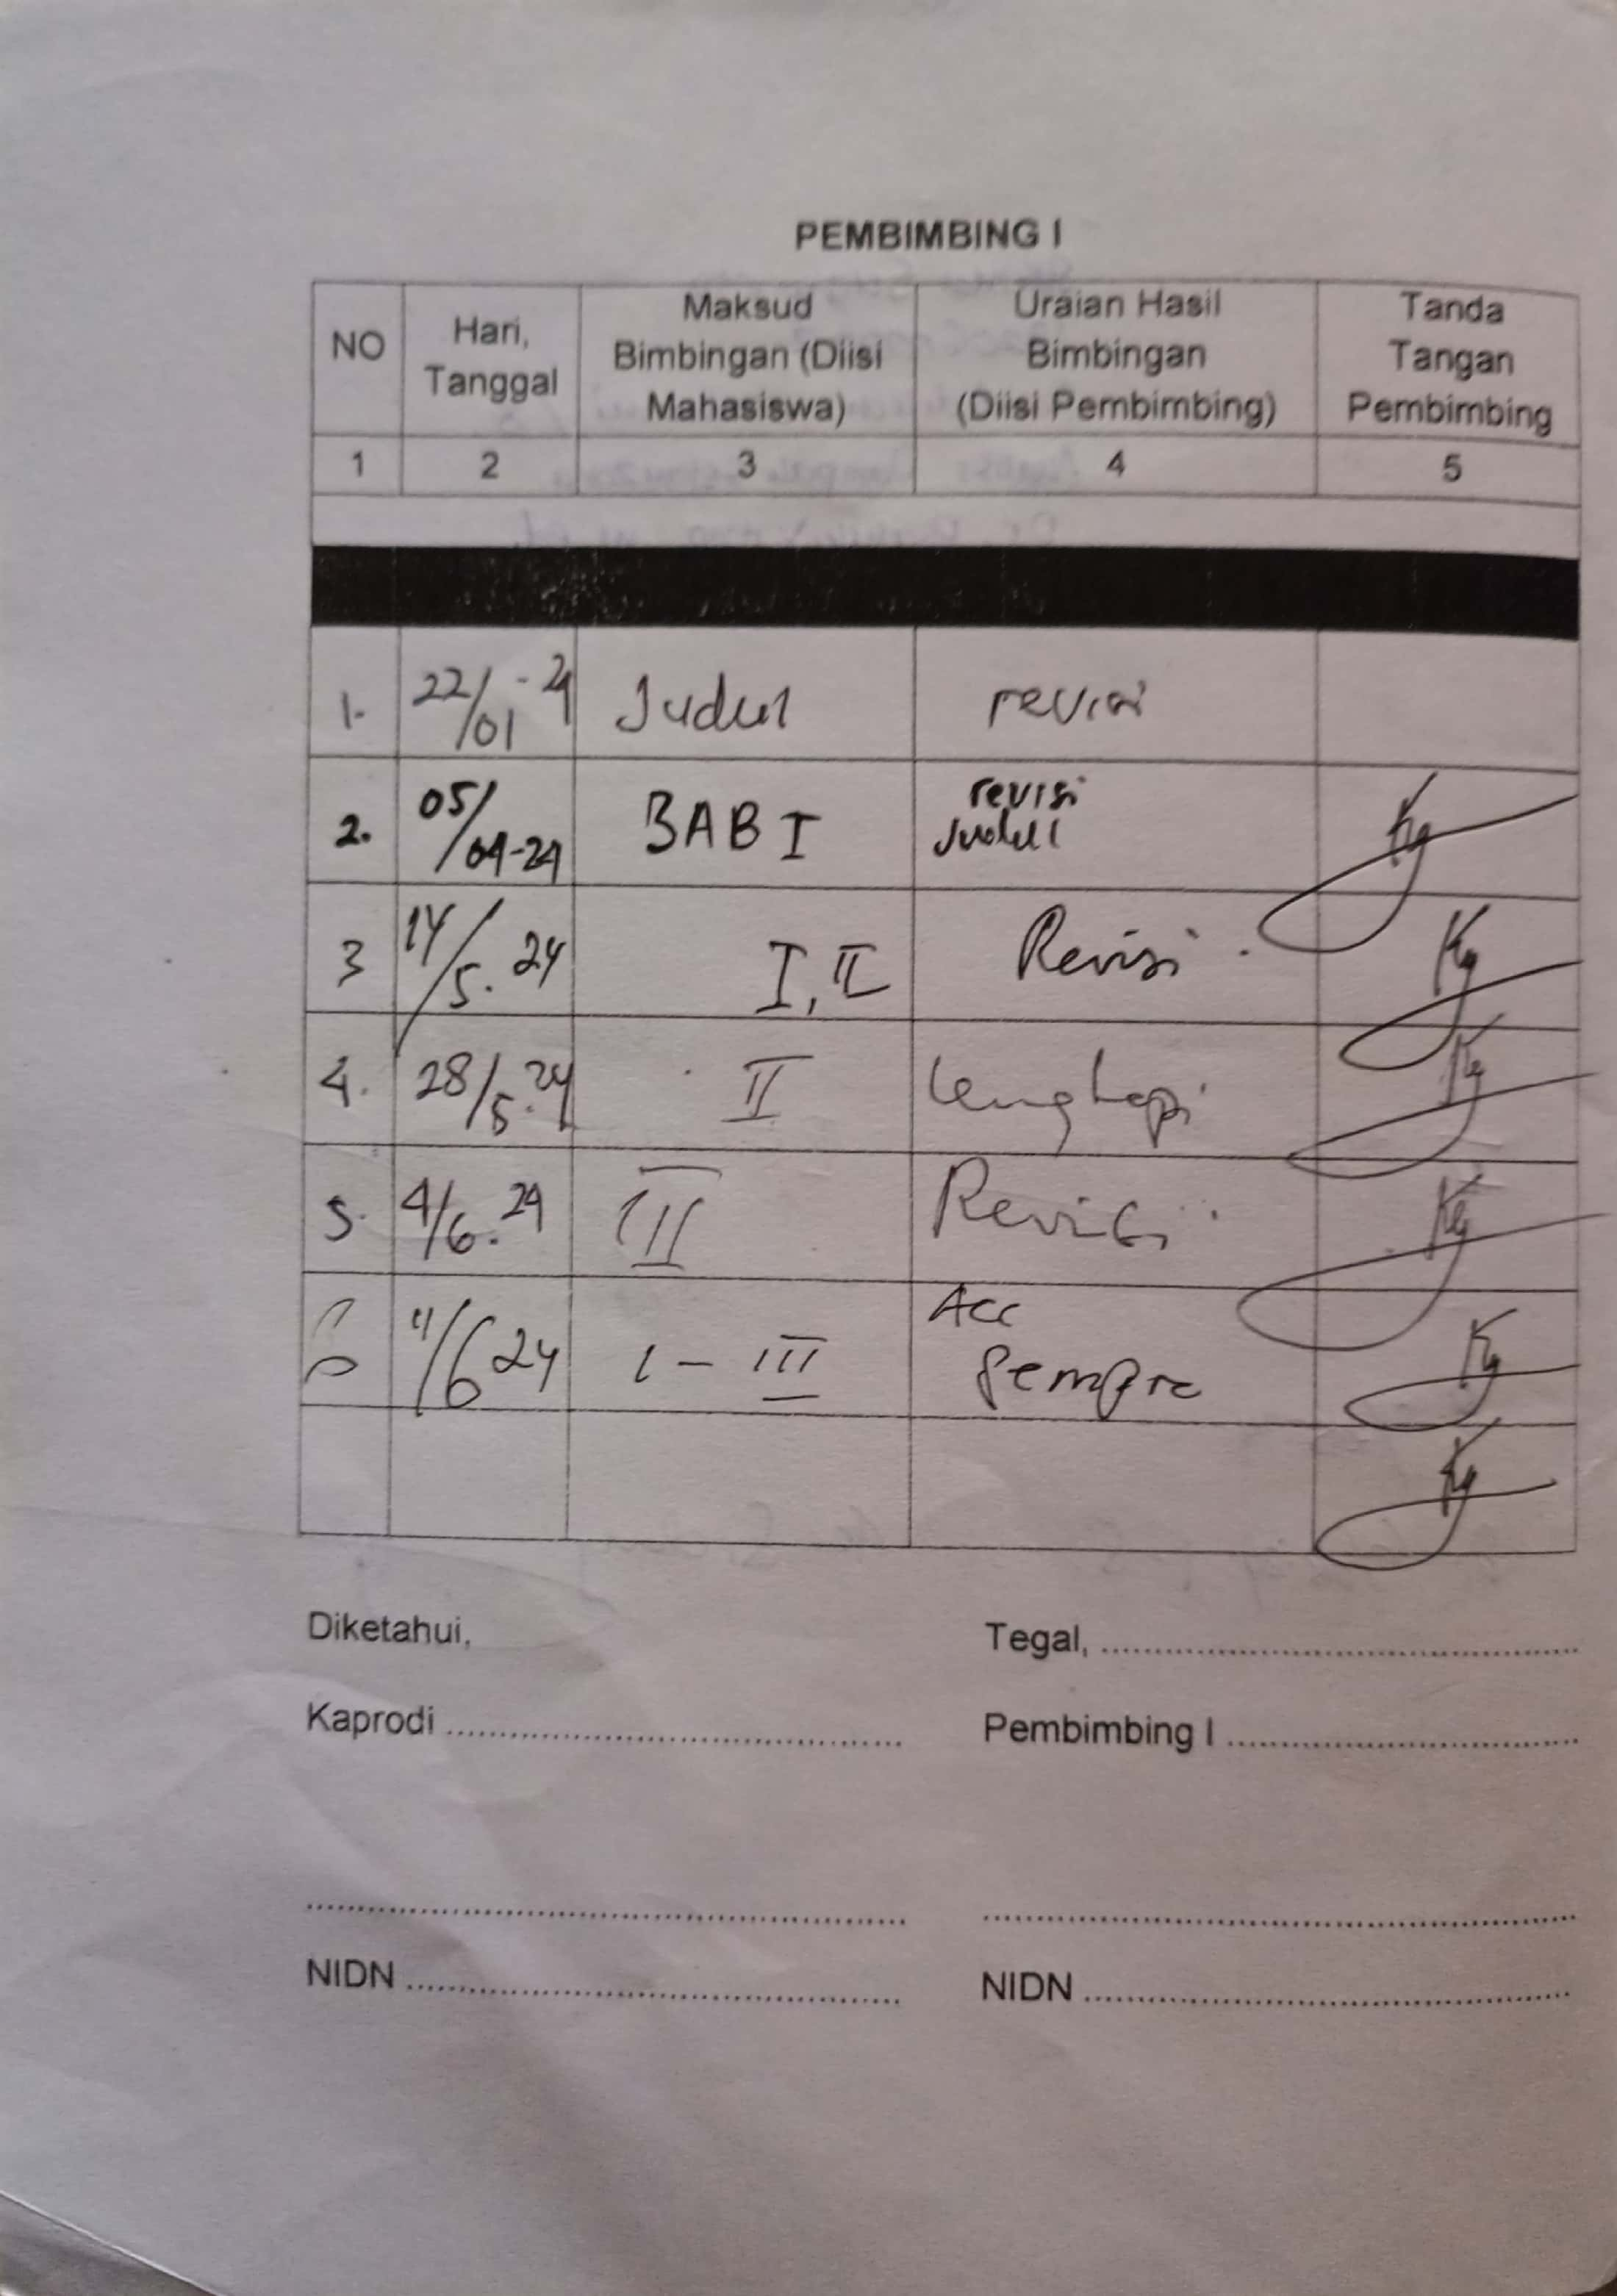 PEMBIMBING I
NO
Hari,
Tanggal
Maksud
Bimbingan (Diisi
Mahasiswa)
Uraian Hasil
Bimbingan
(Diisi Pembimbing)
Tanda
Tangan
Pembimbing
1 2 3 4 5
1. 22/01-24 Judul revisi
2. 05/04-24 BAB I revisi
Judul
3 14/5.24 I, II Revisi.
4. 28/5.24 II Lengkapi
5. 4/6.24 III Revisi
11/6 24 I - III Acc
Sempro
Diketahui, Tegal, ........................
Kaprodi ........................ Pembimbing I ........................
NIDN ........................ NIDN ........................